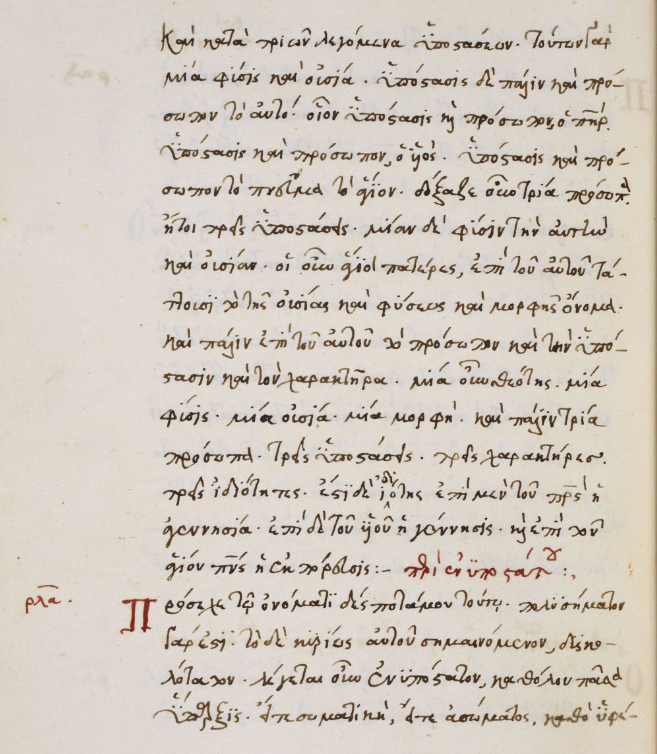 καὶ κατὰ τριῶν λεγόμενα ὑποστάσεων. τούτων γὰρ
μία φύσις καὶ οὐσία. ὑπόστασις δὲ πάλιν καὶ πρό-
σωπον τὸ αὐτό. οἷον ὑπόστασις καὶ πρόσωπον, ὁ πηρ.
ὑπόστασις καὶ πρόσωπον, ὁ υἱός. ὑπόστασις καὶ πρό-
σωπον τὸ πνεῦμα τὸ ἅγιον. δόξαζε οὖν τρία πρόσωπα
ἤτοι τρεῖς ὑποστάσεις. μίαν δὲ φύσιν τὴν αὐτὴν
καὶ οὐσίαν. οἱ οὖν ἅγιοι πατέρες, ἐπὶ τοῦ αὐτοῦ τά-
τουσι τὸ τῆς οὐσίας καὶ φύσεως καὶ μορφῆς ὄνομα.
καὶ πάλιν ἐπὶ τοῦ αὐτοῦ τὸ πρόσωπον καὶ τὴν ὑπό-
στασιν καὶ τὸν χαρακτῆρα. μία οὖν θεότης. μία
φύσις. μία οὐσία. μία μορφή. καὶ πάλιν τρία
πρόσωπα. τρεῖς ὑποστάσεις. τρεῖς χαρακτῆρες.
τρεῖς ἰδιότητες. ἔστι δὲ ἰδιότης ἐπὶ μὲν τοῦ πρς ἡ
ἀγεννησία. ἐπὶ δὲ τοῦ υἱοῦ ἡ γέννησις. καὶ ἐπὶ τοῦ
ἁγίου πνς ἡ ἐκπόρευσις:- περὶ ἐνυποστάτου:,
ρλα. Πρόσεχε τῷ ὀνόματι δέσποτά μου τούτῳ. πολυσήμαντον
γάρ ἐστι. τὸ δὲ κυρίως αὐτοῦ σημαινόμενον, δυσκο-
λότατον. λέγεται οὖν ἐνυπόστατον, καθόλου πᾶσα
ὕπαρξις. εἴτε σωματικὴ, εἴτε ἀσώματος, καθὸ ὑφέ-